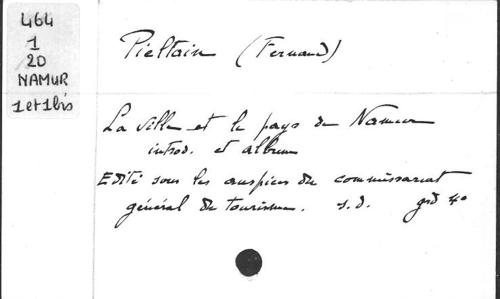 464
1
20
NAMUR
1 et 1 bis
Pieltain (Fernand)
La ville et le pays de Namur
introd. et album
Edité sous les auspices du commissariat
général du tourisme. s.d. grd 4°